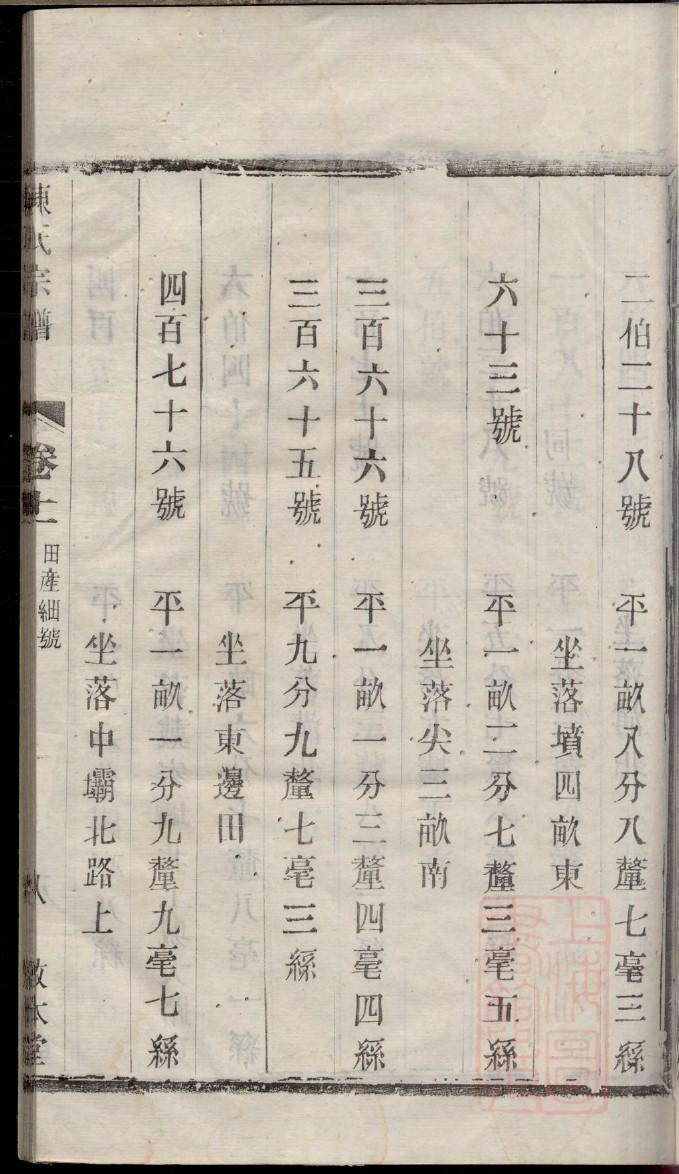 二伯二十八號　平一畝八分八釐七毫三絲
坐落墳四畝東
六十三號　平一畝二分七釐三毫五絲
坐落尖三畝南
三百六十六號　平一畝一分三釐四毫四絲
三百六十五號　平九分九釐七毫三絲
坐落東邊田
四百七十六號　平一畝一分九釐九毫七絲
坐落中壩北路上
陳氏宗譜　卷十一　田產細號　八　敦本堂